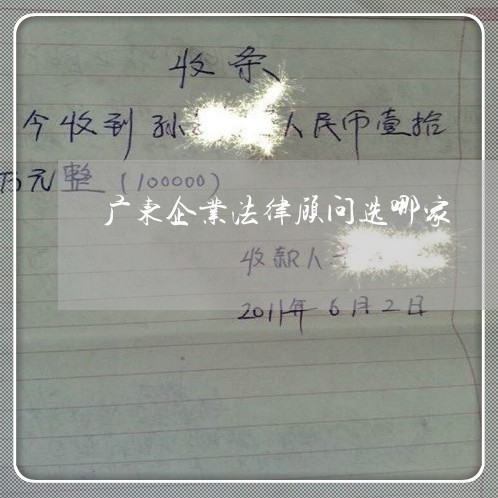 收条
今收到孙 人民币壹拾
万元整（100000）
广东企業法律顾问选哪家
收款人
2011年6月2日